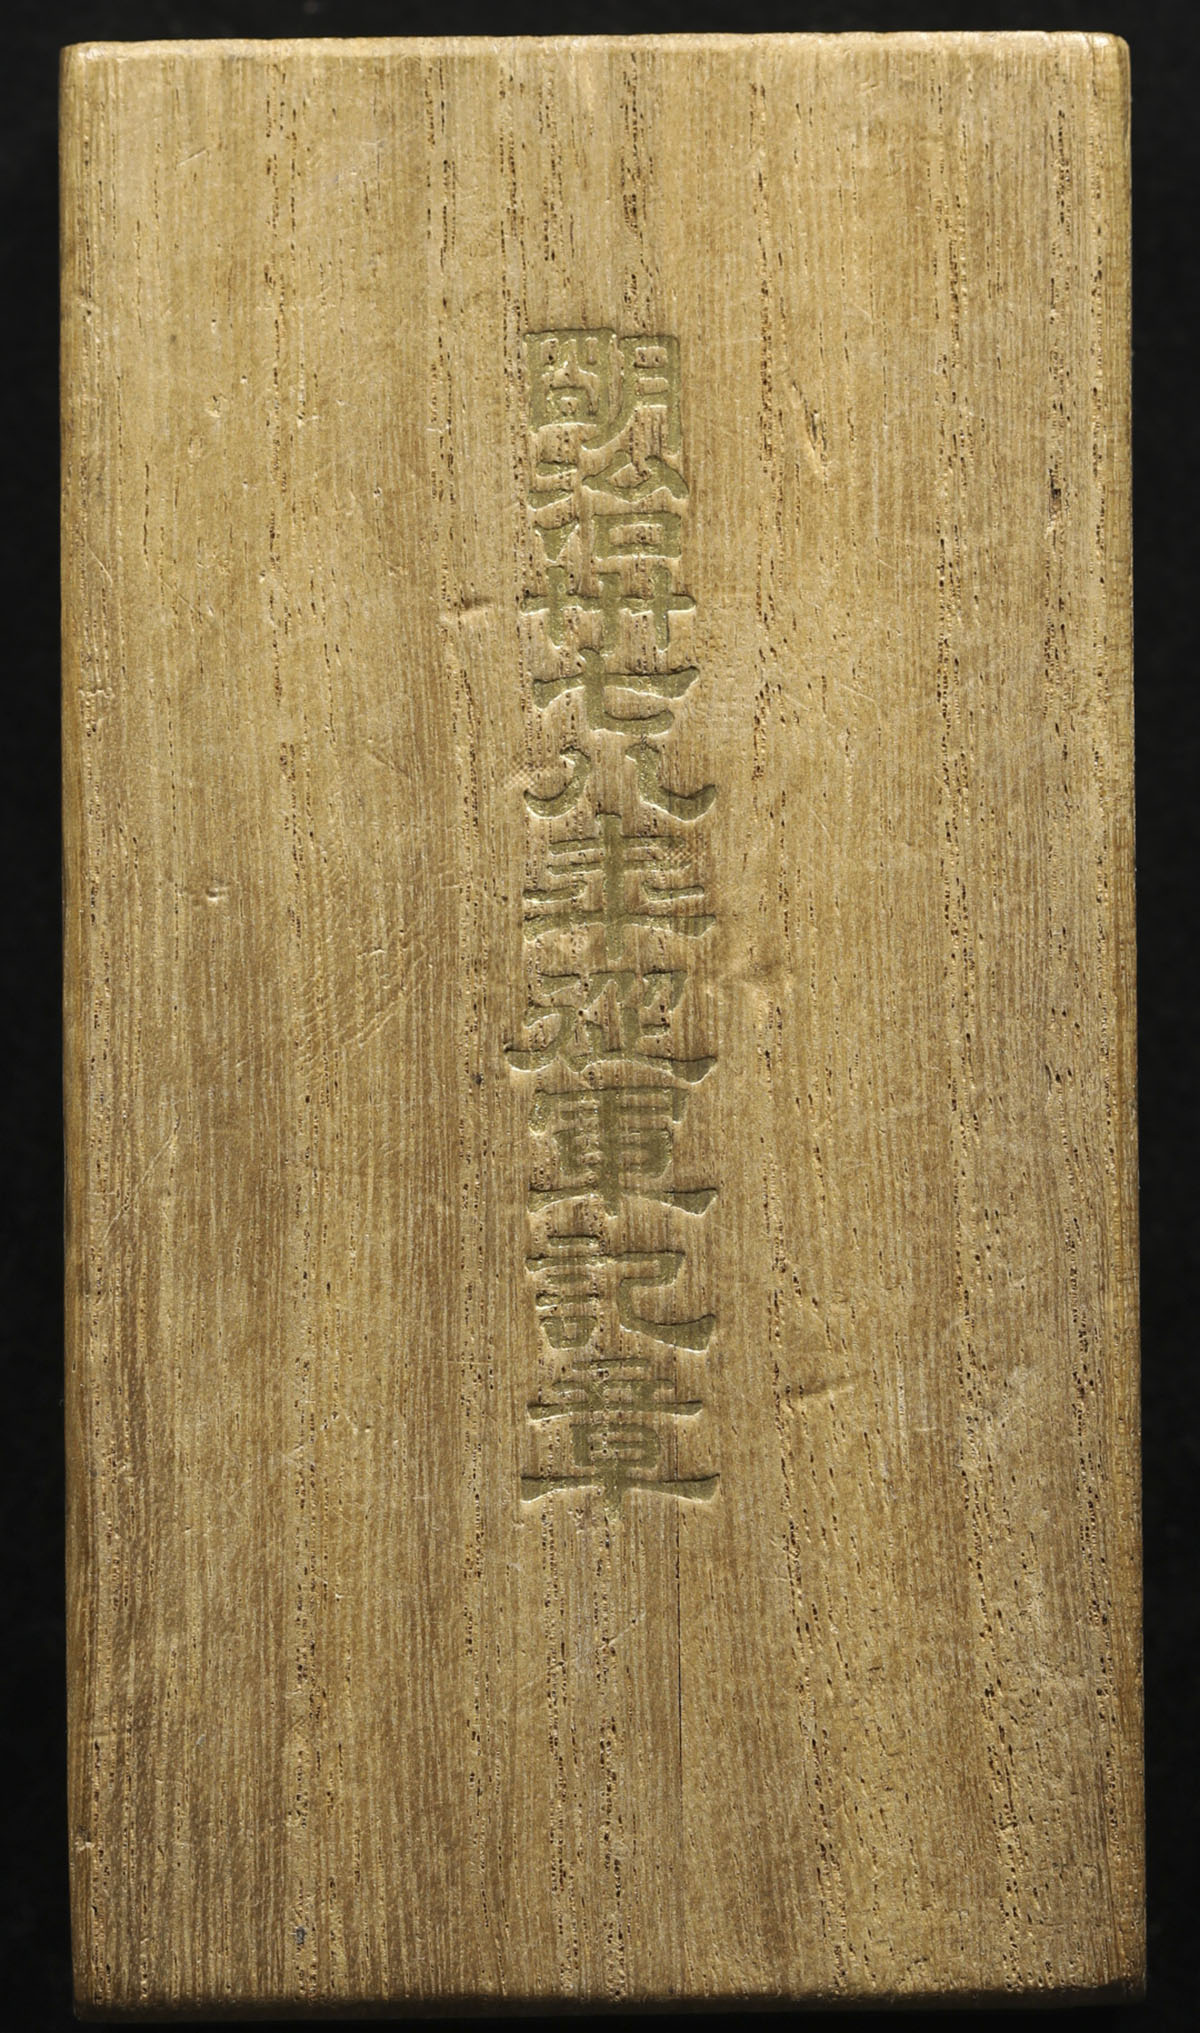 明治卅七八年從軍記章